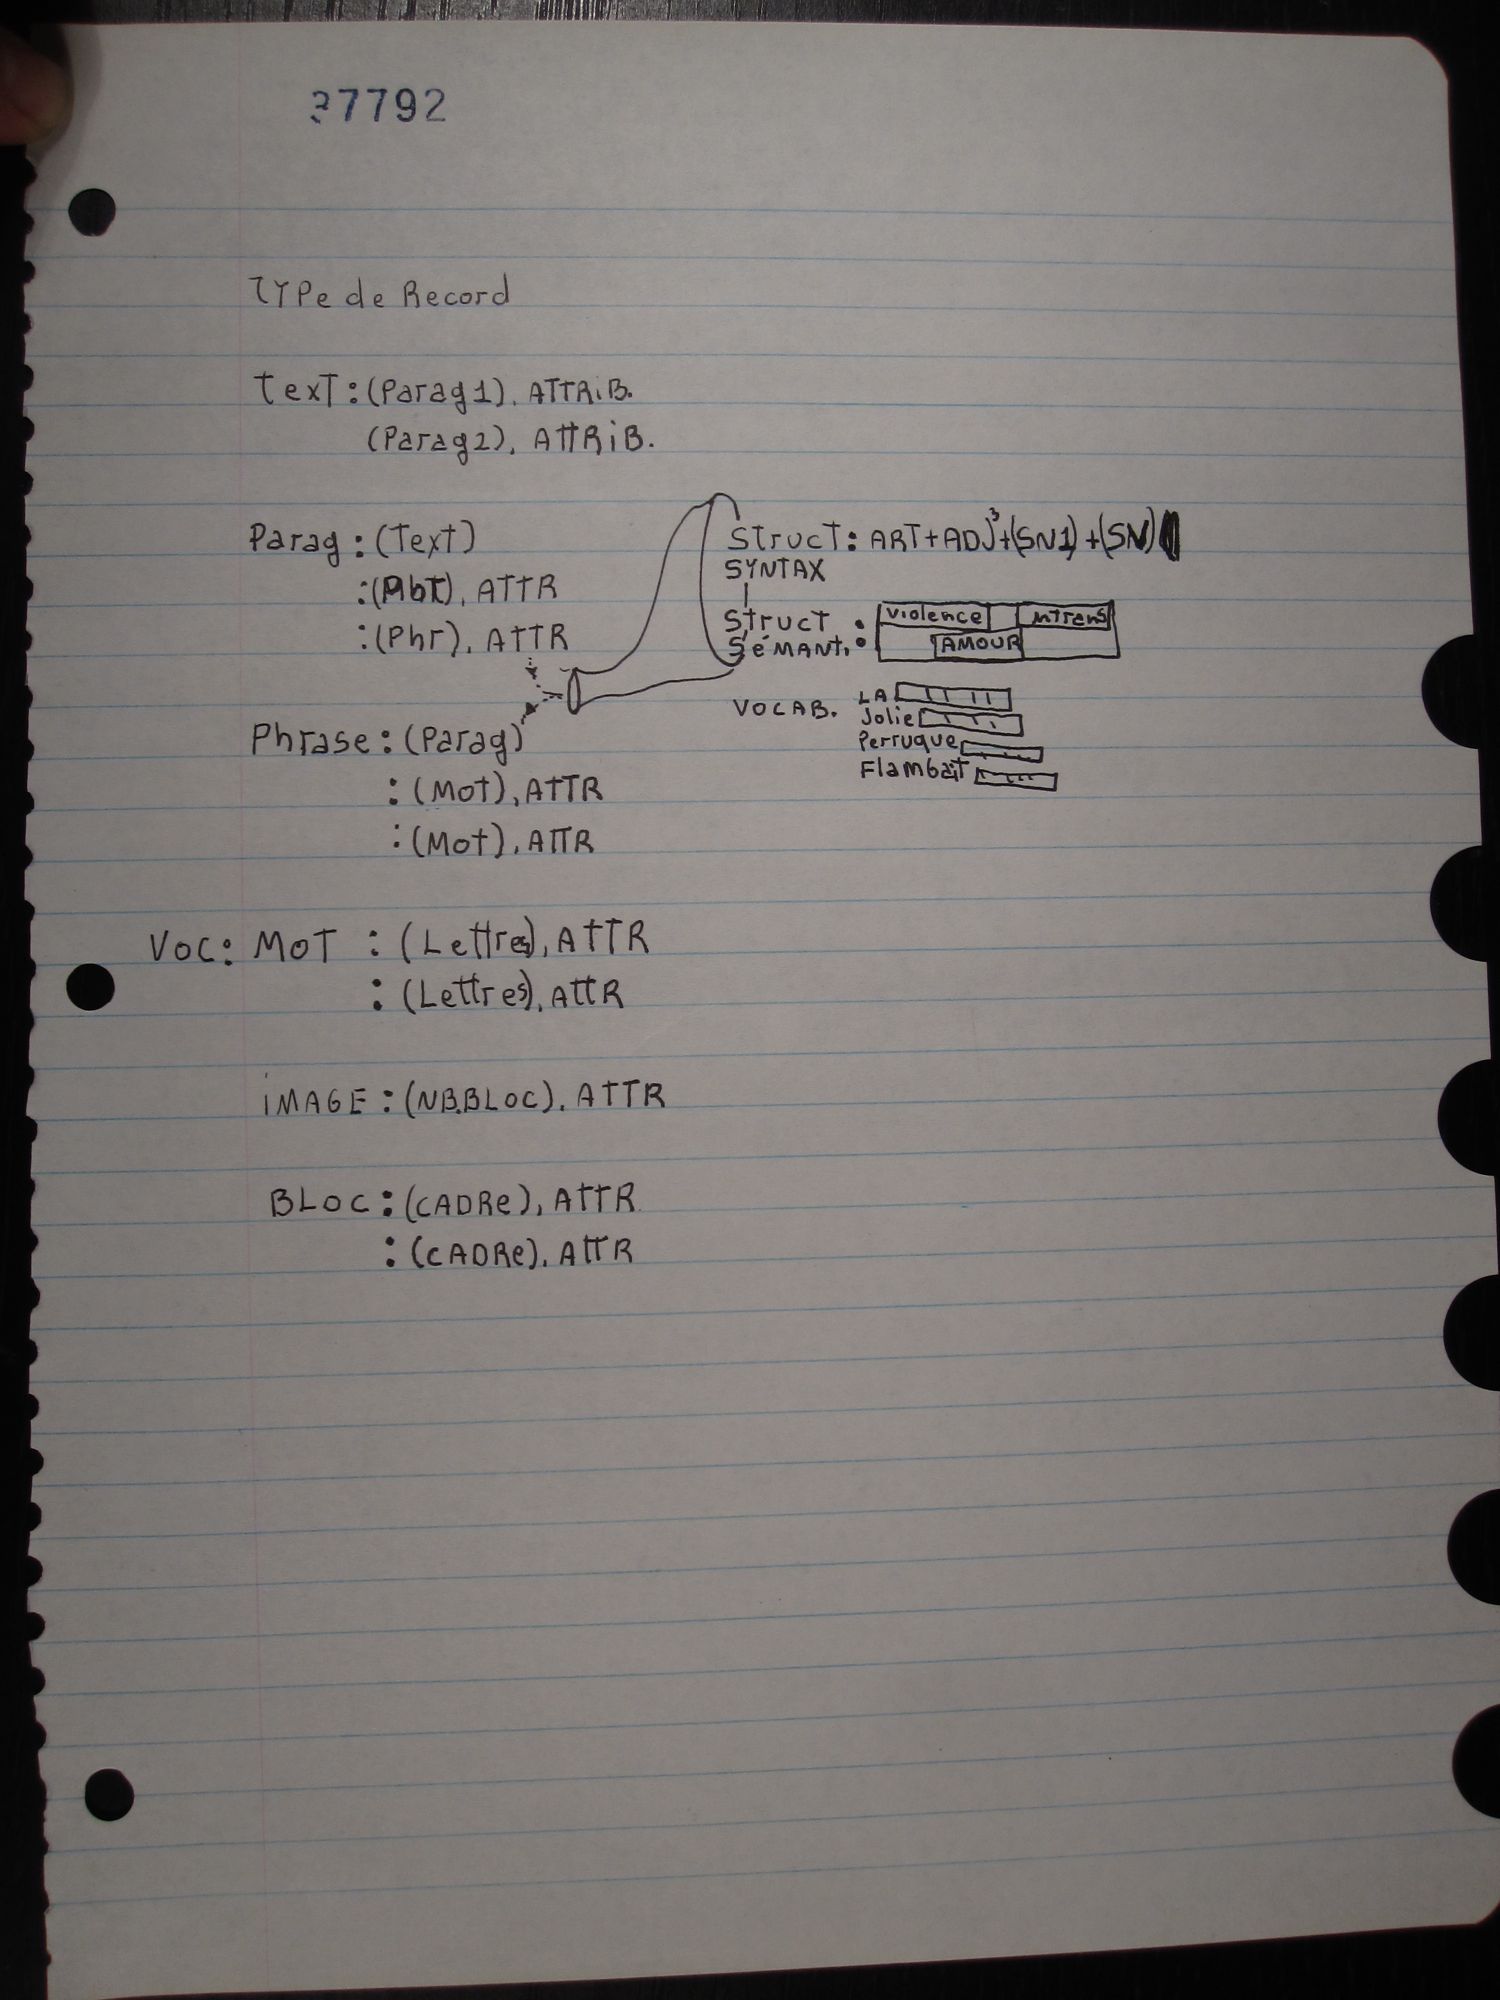 37792
TYPe de Record
Text: (Parag1), ATTRiB.
(Parag2), ATTRiB.
Parag: (Text)
: , ATTR
: (Phr), ATTR
Struct: ART+ADJ³+(SN1)+(SN)
SYNTAX
Struct :
SéMANT. :
violence
AMOUR
VOCAB.
LA
Jolie
Perruque
Flambait
Phrase: (Parag)
: (Mot), ATTR
: (Mot), ATTR
VOC: MOT : (Lettres), ATTR
: (Lettres), ATTR
iMAGE: (NB.BLOC), ATTR
BLOC: (CADRe), ATTR
: (CADRe), ATTR